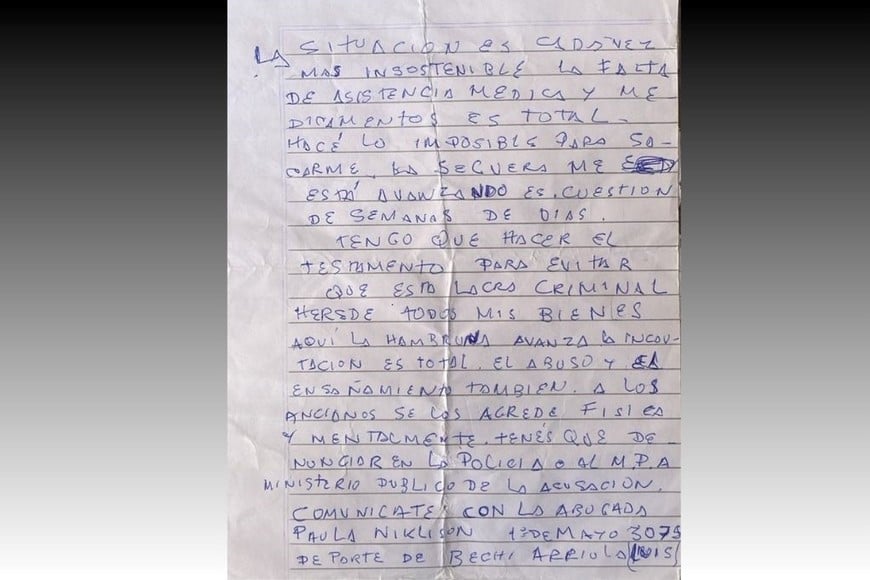 LA SITUACION ES CADA VEZ
MAS INSOSTENIBLE LA FALTA
DE ASISTENCIA MEDICA Y ME
DICAMENTOS ES TOTAL.
HACÉ LO IMPOSIBLE PARA SA-
CARME, LA SEGUERA ME
ESTÁ AVANZANDO ES CUESTION
DE SEMANAS DE DIAS.
TENGO QUE HACER EL
TESTAMENTO PARA EVITAR
QUE ESTA LACRA CRIMINAL
HEREDE TODOS MIS BIENES
AQUÍ LA HAMBRUNA AVANZA LA INCOU-
TACION ES TOTAL. EL ABUSO Y EL
ENSAÑAMIENTO TAMBIEN. A LOS
ANCIANOS SE LOS AGREDE FISICA
Y MENTALMENTE. TENÉS QUE DE
NUNCIAR EN LA POLICIA O AL M.P.A
MINISTERIO PUBLICO DE LA ACUSACION.
COMUNICATE CON LA ABOGADA
PAULA NIKLISON 1º DE MAYO 3075
DE PORTE DE BECHI ARRIOLA (LUIS)